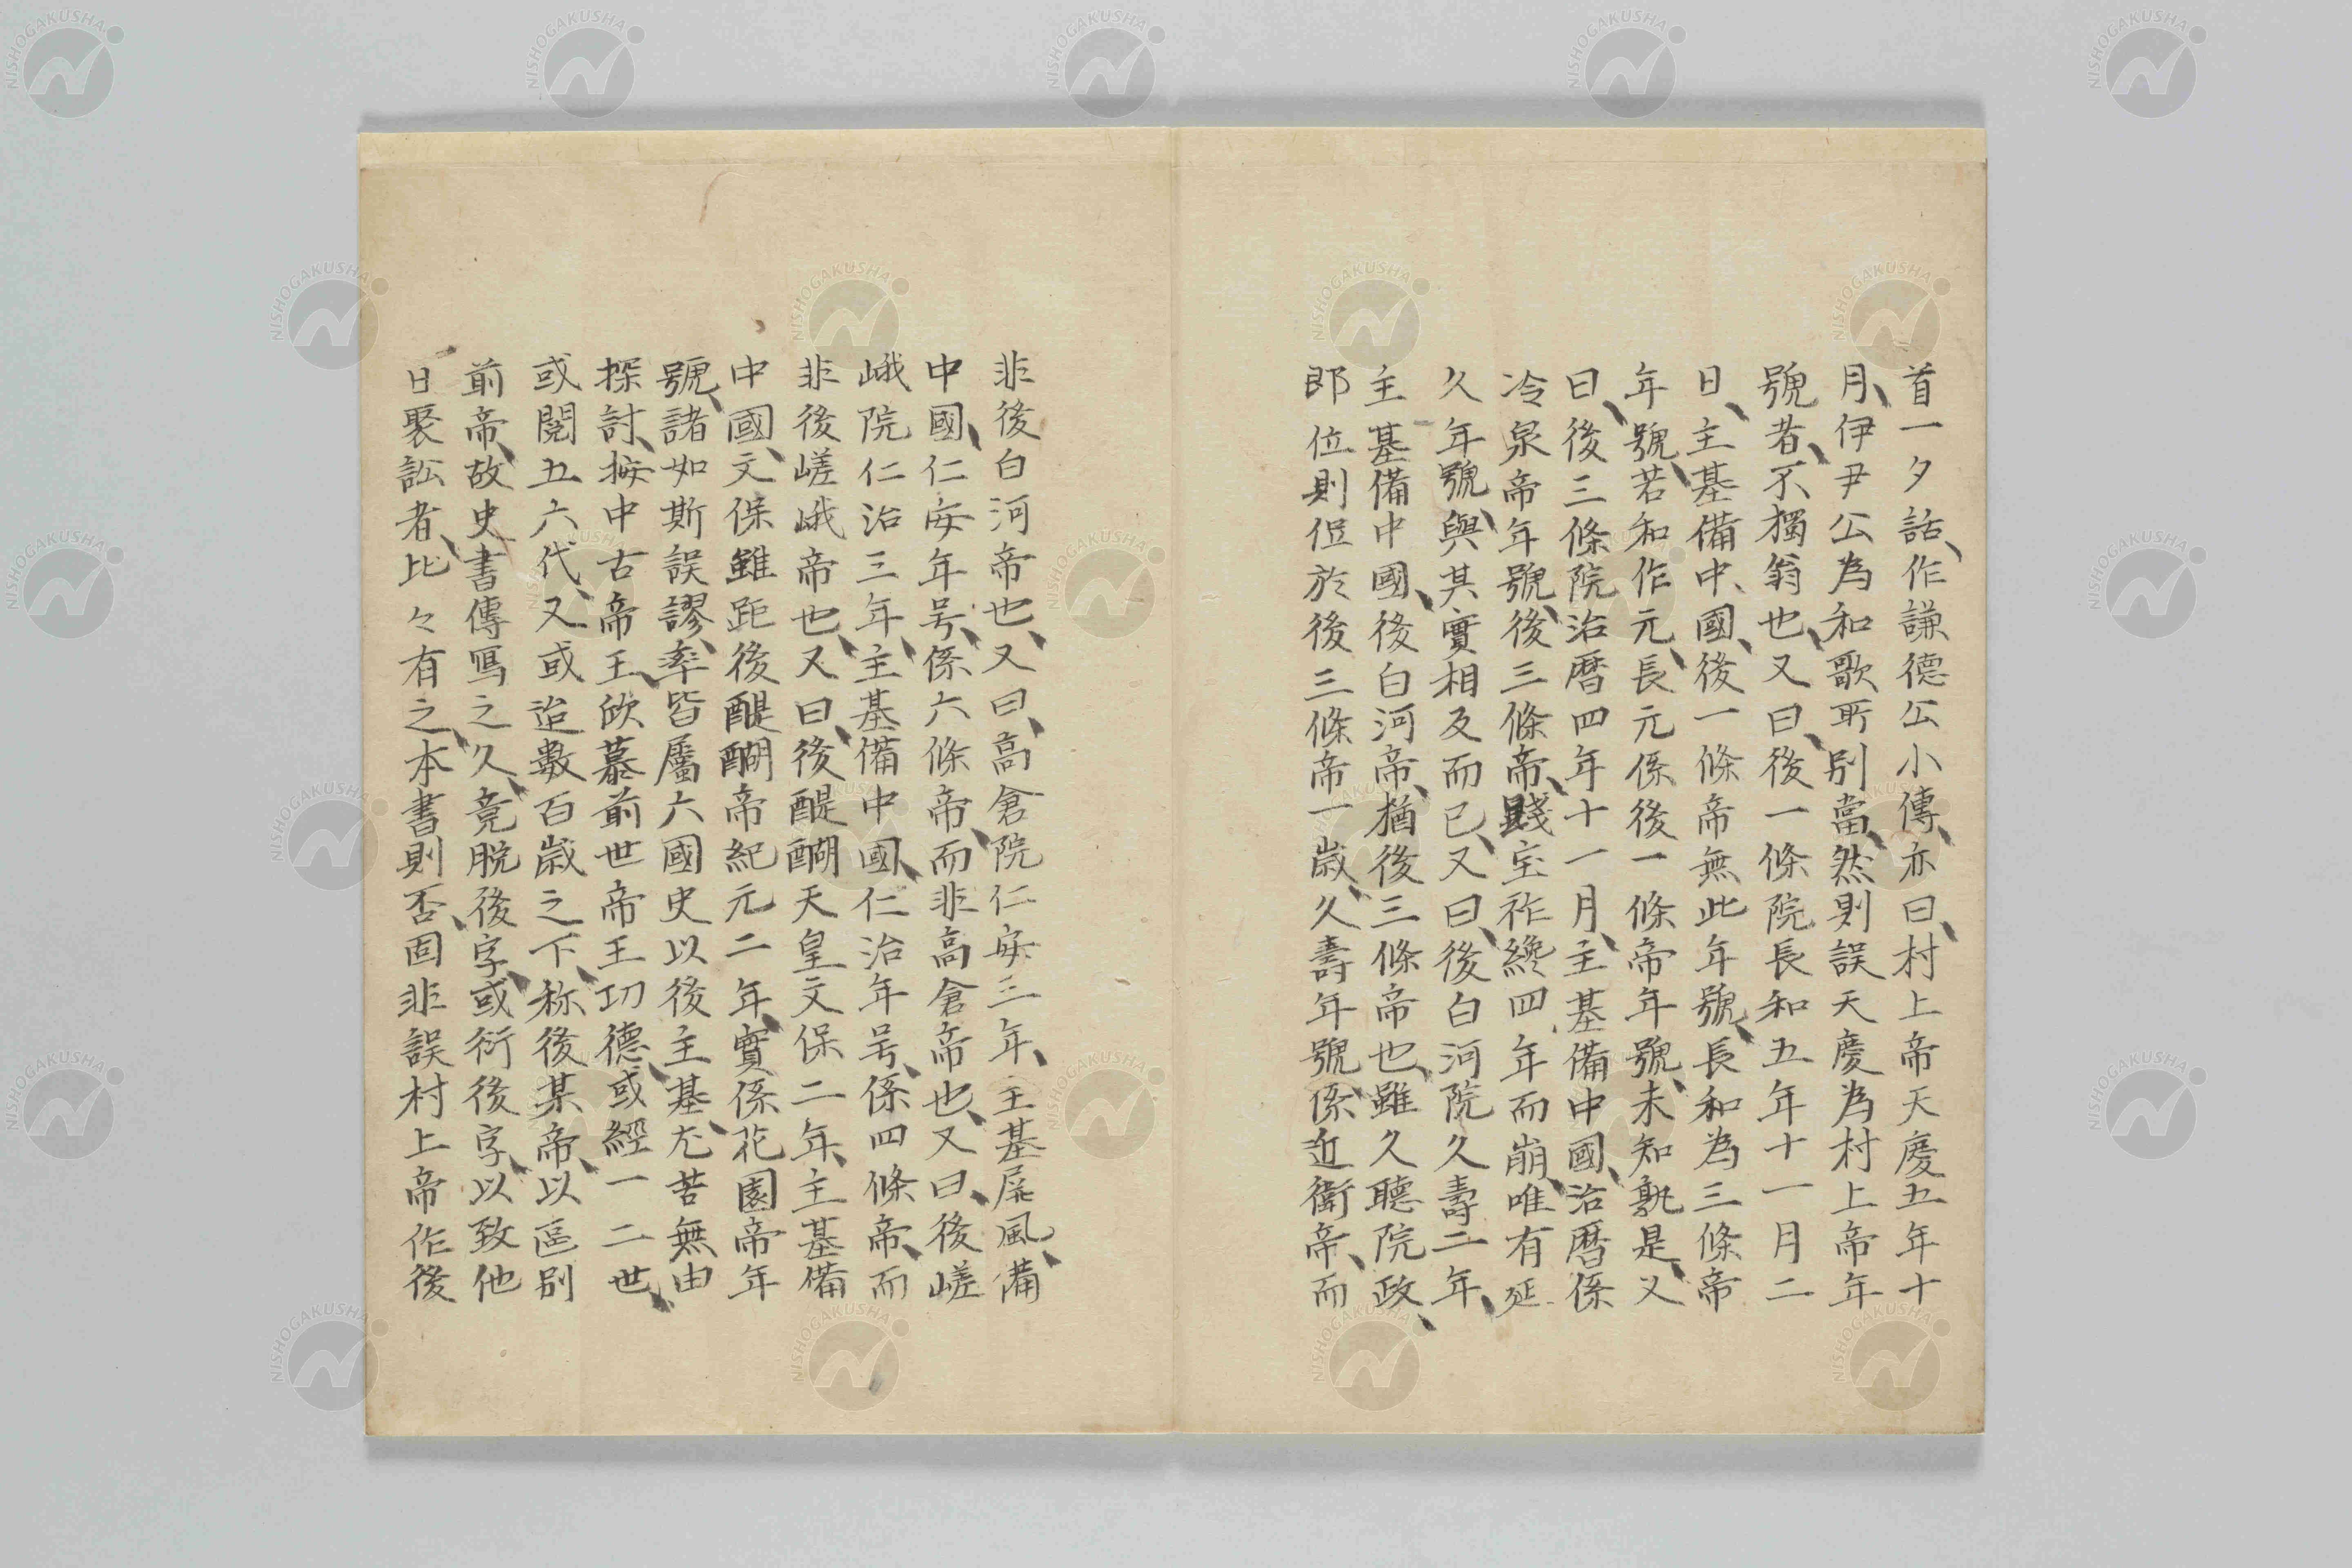 首一夕話、作謙德公小傳、亦曰、村上帝天慶五年十
月、伊尹公為和歌所別當、然則誤天慶為村上帝年
號者、不獨翁也、又曰、後一條院長和五年十一月二
日、主基備中、國、後一條帝無此年號、長和為三條帝
年號、若和作元、長元係後一條帝年號、未知孰是、又
曰、後三條院治暦四年十一月、主基備中國、治暦係
冷泉帝年號、後三條帝、踐宝祚纔四年而崩、唯有延
久年號、與其實相反而已、又曰、後白河院久壽二年、
主基備中國、後白河帝、猶後三條帝也、雖久聴院政、
即位則但於後三條帝一歳、久壽年號、係近衛帝、而
非後白河帝也、又曰、高倉院仁安三年、主基屏風、備
中國、仁安年号、係六條帝、而非高倉帝也、又曰、後嵯
峨院仁治三年、主基備中國、仁治年号、係四條帝、而
非後嵯峨帝也、又曰、後醍醐天皇文保二年、主基備
中國、文保雖距後醍醐帝紀元二年、實係花園帝年
號、諸如斯誤謬、率皆屬六國史以後主基、尤苦無由
探討、按中古帝王、欽慕前世帝王功德、或經一二世、
或閲五六代、又或迨數百歳之下、称後某帝、以區別
前帝、故史書傳寫之久、竟脱後字、或衍後字、以致他
日聚訟者、比々有之、本書則否、固非誤村上帝作後